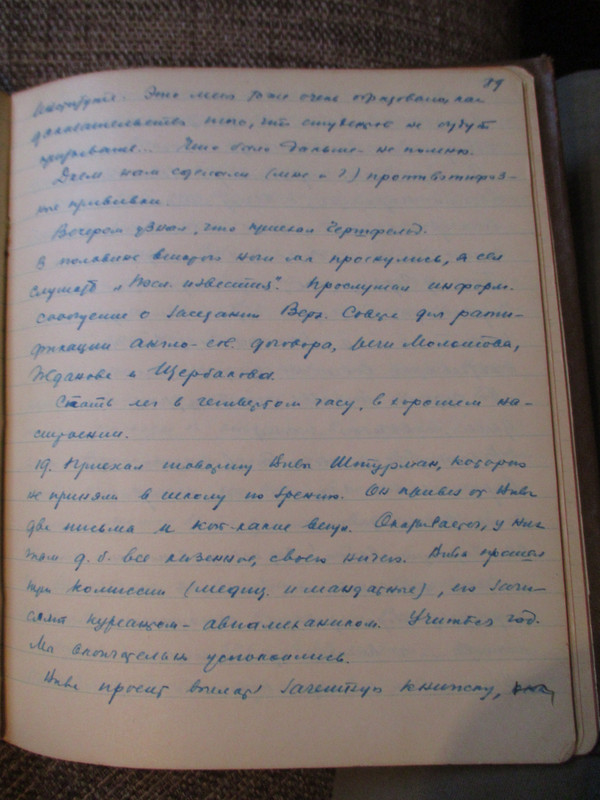 89
институте. Это меня тоже очень обрадовало, как
доказательство того, что студентов не будут
призывать... Что было дальше - не помню.
Днем нам сделали (мне и ) противотифоз-
ные прививки.
Вечером узнал, что приехал Чертфельд.
В половине второго ночи ма проснулись, я сел
слушать „Посл. известия". Прослушал информ.
сообщение о заседании Верх. Совета для рати-
фикации англо-сов. договора, речи Молотова,
Жданова и Щербакова.
Спать лег в четвертом часу, в хорошем на-
строении.
19. Приехал товарищ Вивы Штурман, которого
не приняли в школу по зрению. Он привез от Вивы
два письма и кой-какие вещи. Оказывается, у них
там д. б. все казенное, своего ничего. Вива прошел
три комиссии (медиц. и мандатные), его зачи-
слили курсантом-авиамехаником. Учиться год.
Мы окончательно успокоились.
Вива просит выслать зачетную книжку,